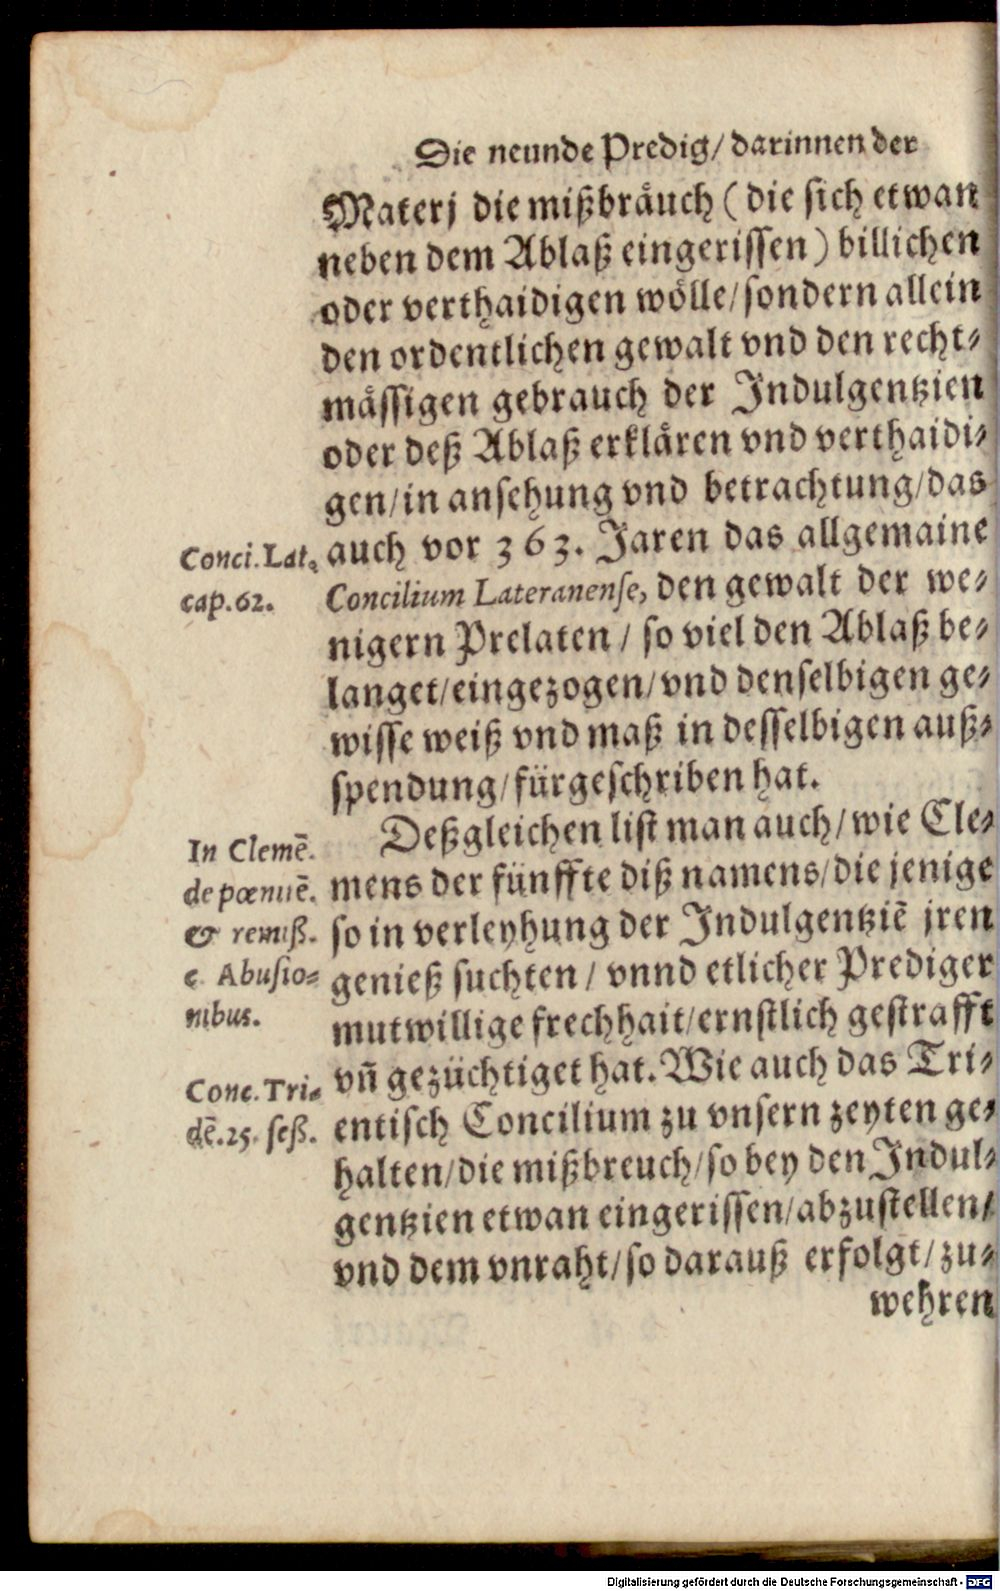 Die neunde Predig/ darinnen der
Materj die mißbräuch (die sich etwan
neben dem Ablaß eingerissen) billichen
oder verthaidigen wölle/ sondern allein
den ordentlichen gewalt vnd den recht-
mässigen gebrauch der Indulgentzien
oder deß Ablaß erklären vnd verthaidi-
gen/ in ansehung vnd betrachtung/ das
auch vor 363. Jaren das allgemaine
Conci. Lat.
cap. 62.
Concilium Lateranense, den gewalt der we-
nigern Prelaten / so viel den Ablaß be-
langet/ eingezogen/ vnd denselbigen ge-
wisse weiß vnd maß in desselbigen auß-
spendung/ fürgeschriben hat.
Deßgleichen list man auch/ wie Cle-
In Clemē.
de pœnitē.
& remiß.
c. Abusio-
nibus.
mens der fünffte diß namens/ die jenige
so in verleyhung der Indulgentziē jren
genieß suchten / vnnd etlicher Prediger
mutwillige frechhait/ ernstlich gestrafft
vñ gezüchtiget hat. Wie auch das Tri-
Conc. Tri-
dē. 25. seß.
entisch Concilium zu vnsern zeyten ge-
halten/ die mißbreuch/ so bey den Indul-
gentzien etwan eingerissen/ abzustellen/
vnd dem vnraht/ so darauß erfolgt/ zu-
wehren
Digitalisierung gefördert durch die Deutsche Forschungsgemeinschaft - DFG